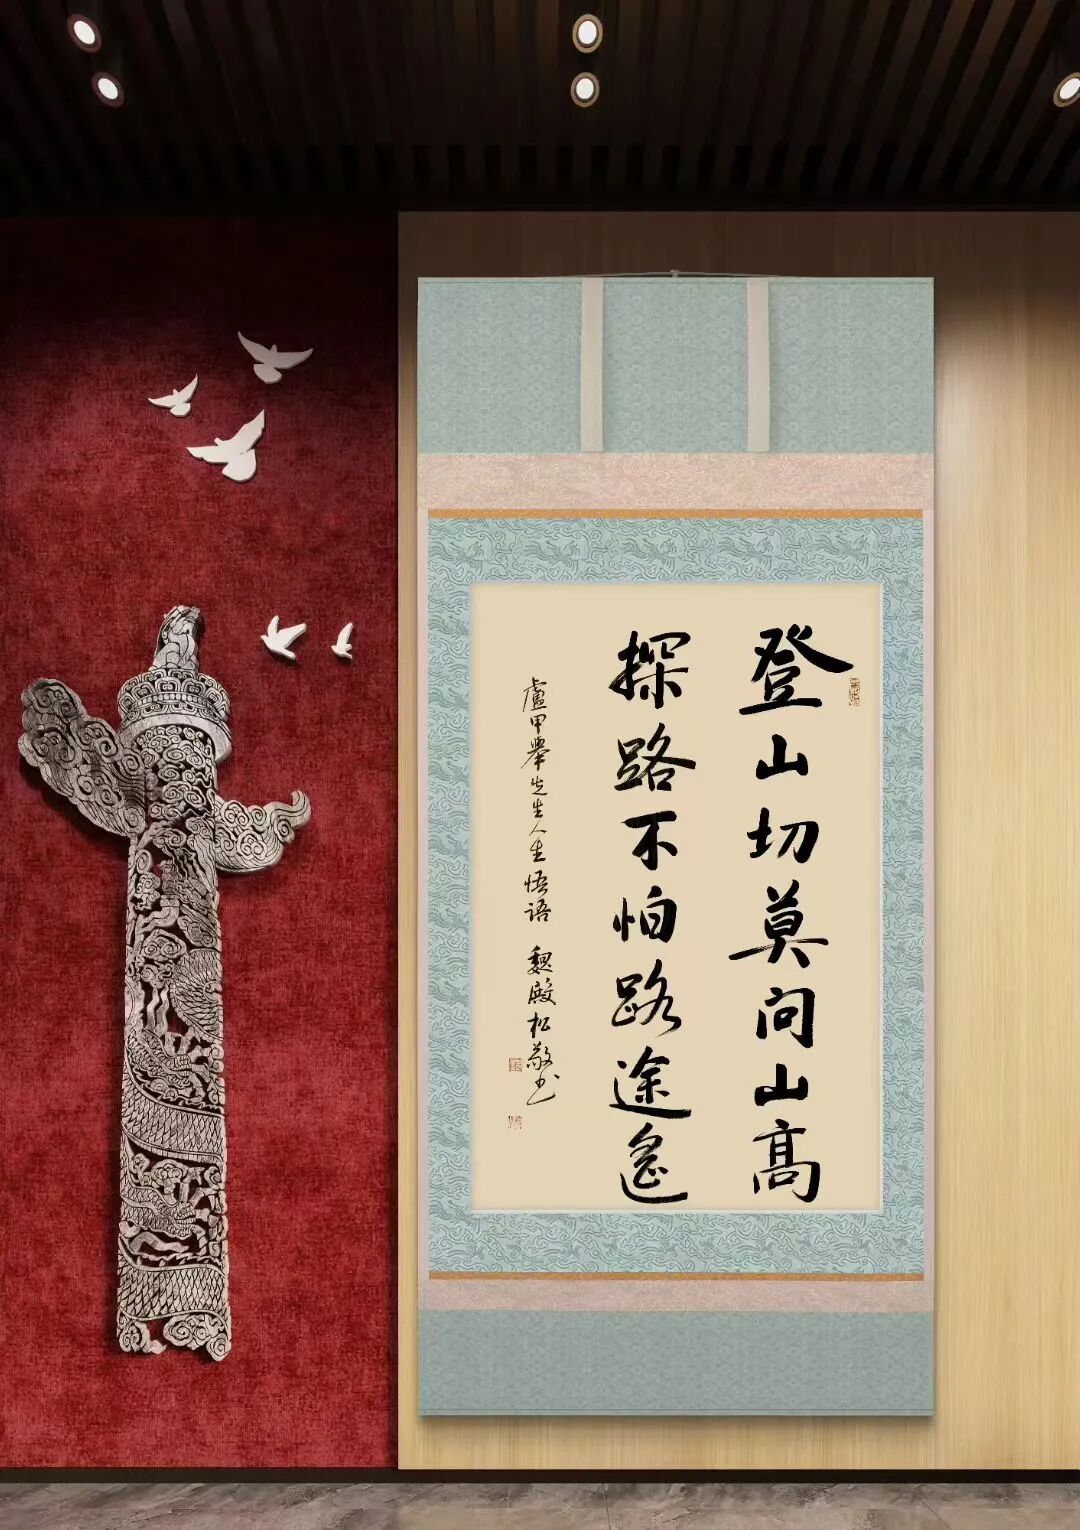 登山切莫问山高
探路不怕路途遥
盧甲舉先生人生悟语 魏殿松敬书